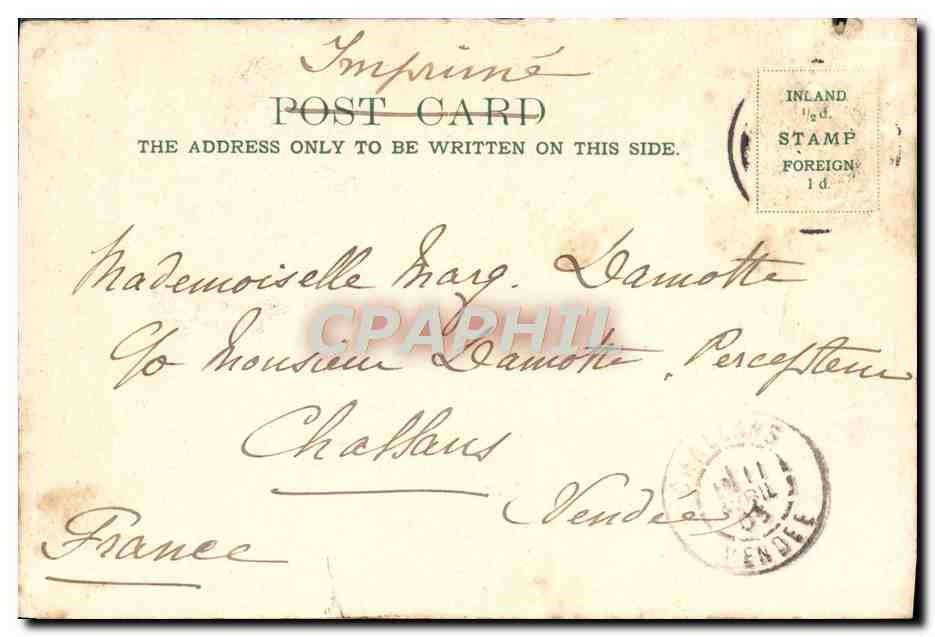 Imprimé
POST CARD
THE ADDRESS ONLY TO BE WRITTEN ON THIS SIDE.
INLAND
½ d.
STAMP
FOREIGN
1 d.
Mademoiselle Marg. Damotte
c/o Monsieur Damotte, Percepteur
CPAPHIL
Challans
Vendée
France
11
AVRIL
03
VENDEE